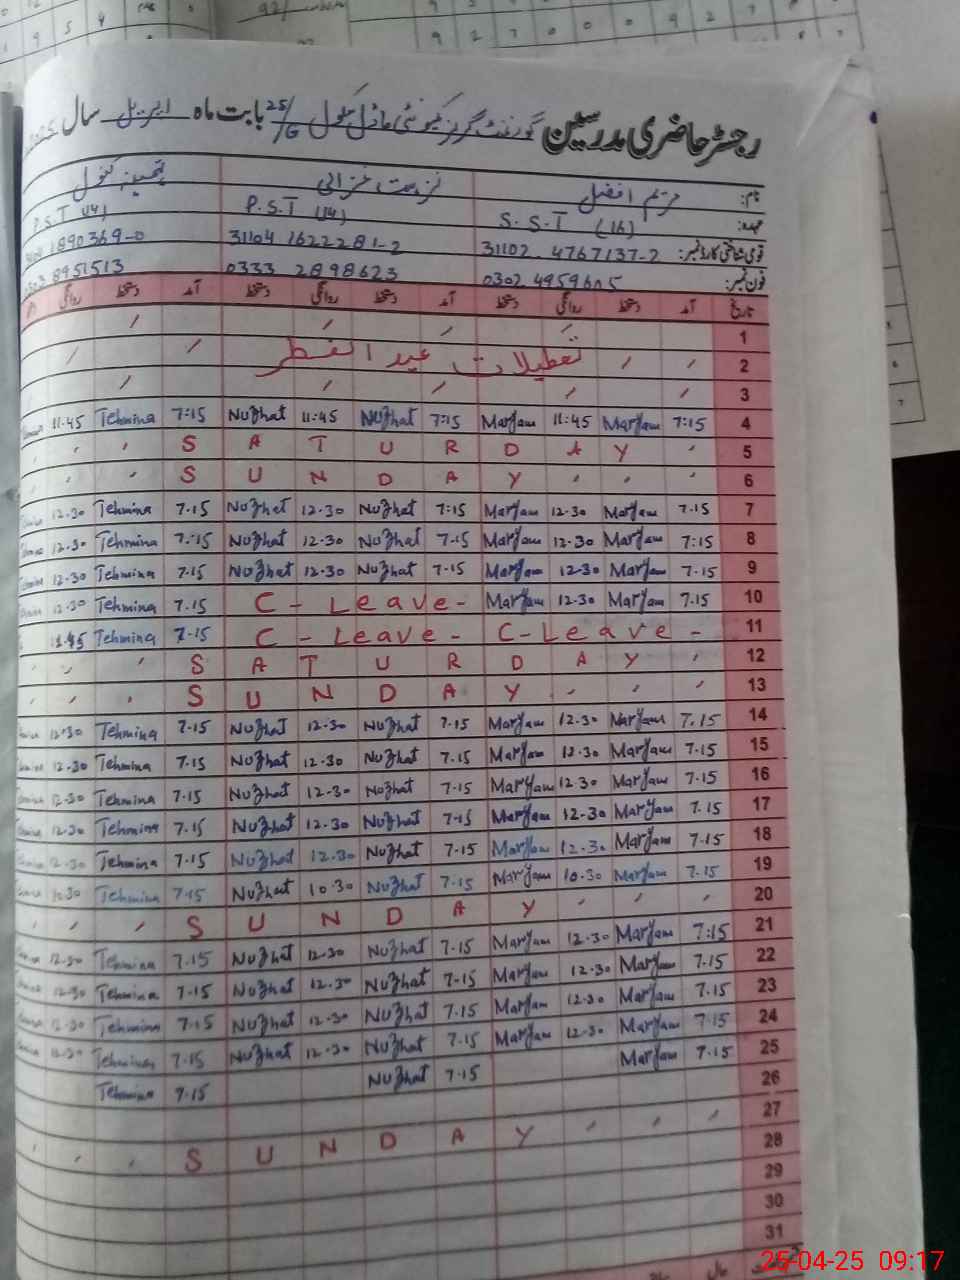 رجسٹر حاضری مدرسین گورنمنٹ گرلز کمیونٹی ماڈل سکول 25/G بابت ماہ اپریل سال 2025
نام: مریم افضل نزہت غزالی تہمینہ کنول
عہدہ: S.S.T (16) P.S.T (14) P.S.T (14)
قومی شناختی کارڈ نمبر: 31102-4767137-2 31104 1622281-2 1890369-0
فون نمبر: 0302 4959605 0333 2898623 0303 8951513
تاریخ آمد دستخط روانگی دستخط آمد دستخط روانگی دستخط آمد دستخط روانگی
1
2 تعطیلات عید الفطر
3
4 7:15 Maryam 11:45 Maryam 7:15 Nuzhat 11:45 Nuzhat 7:15 Tehmina 11:45
5 SATURDAY
6 SUNDAY
7 7.15 Maryam 12.30 Maryam 7:15 Nuzhat 12.30 Nuzhat 7.15 Tehmina 12.30
8 7:15 Maryam 12.30 Maryam 7.15 Nuzhat 12.30 Nuzhat 7:15 Tehmina 12.30
9 7.15 Maryam 12.30 Maryam 7.15 Nuzhat 12.30 Nuzhat 7.15 Tehmina 12.30
10 7.15 Maryam 12.30 Maryam C - Leave - 7.15 Tehmina 12.30
11 C - Leave - C - Leave - 7.15 Tehmina 11.45
12 SATURDAY
13 SUNDAY
14 7.15 Maryam 12.30 Maryam 7.15 Nuzhat 12.30 Nuzhat 7.15 Tehmina 12.30
15 7.15 Maryam 12.30 Maryam 7.15 Nuzhat 12.30 Nuzhat 7.15 Tehmina 12.30
16 7.15 Maryam 12.30 Maryam 7.15 Nuzhat 12.30 Nuzhat 7.15 Tehmina 12.30
17 7.15 Maryam 12.30 Maryam 7.15 Nuzhat 12.30 Nuzhat 7.15 Tehmina 12.30
18 7.15 Maryam 12.30 Maryam 7.15 Nuzhat 12.30 Nuzhat 7.15 Tehmina 12.30
19 7.15 Maryam 10.30 Maryam 7.15 Nuzhat 10.30 Nuzhat 7.15 Tehmina 10.30
20 SUNDAY
21 7:15 Maryam 12.30 Maryam 7.15 Nuzhat 12.30 Nuzhat 7.15 Tehmina 12.30
22 7.15 Maryam 12.30 Maryam 7.15 Nuzhat 12.30 Nuzhat 7.15 Tehmina 12.30
23 7.15 Maryam 12.30 Maryam 7.15 Nuzhat 12.30 Nuzhat 7.15 Tehmina 12.30
24 7.15 Maryam 12.30 Maryam 7.15 Nuzhat 12.30 Nuzhat 7.15 Tehmina 12.30
25 7.15 Maryam 7.15 Nuzhat 7.15 Tehmina
26
27 SUNDAY
28
29
30
31
25-04-25 09:17